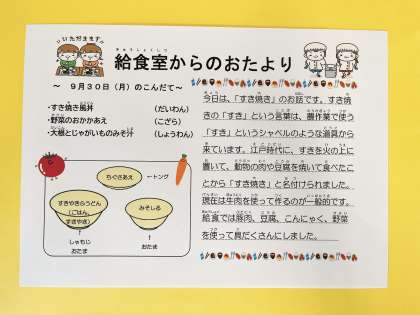 いただきます
給食室からのおたより
きゅうしょくしつ
～ 9月30日（月）のこんだて～
・すき焼き風丼 （だいわん）
・野菜のおかかあえ （こざら）
・大根とじゃがいものみそ汁 （しょうわん）
ちぐさあえ
←トング
すきやきふうどん
（ごはん、
すきやき）
みそしる
↑
しゃもじ
おたま
↑
おたま
今日は、「すき焼き」のお話です。すき焼
きの「すき」という言葉は、農作業で使う
「すき」というシャベルのような道具から
来ています。江戸時代に、すきを火の上に
置いて、動物の肉や豆腐を焼いて食べたこ
とから「すき焼き」と名付けられました。
現在は牛肉を使って作るのが一般的です。
給食では豚肉、豆腐、こんにゃく、野菜
を使って具だくさんにしました。